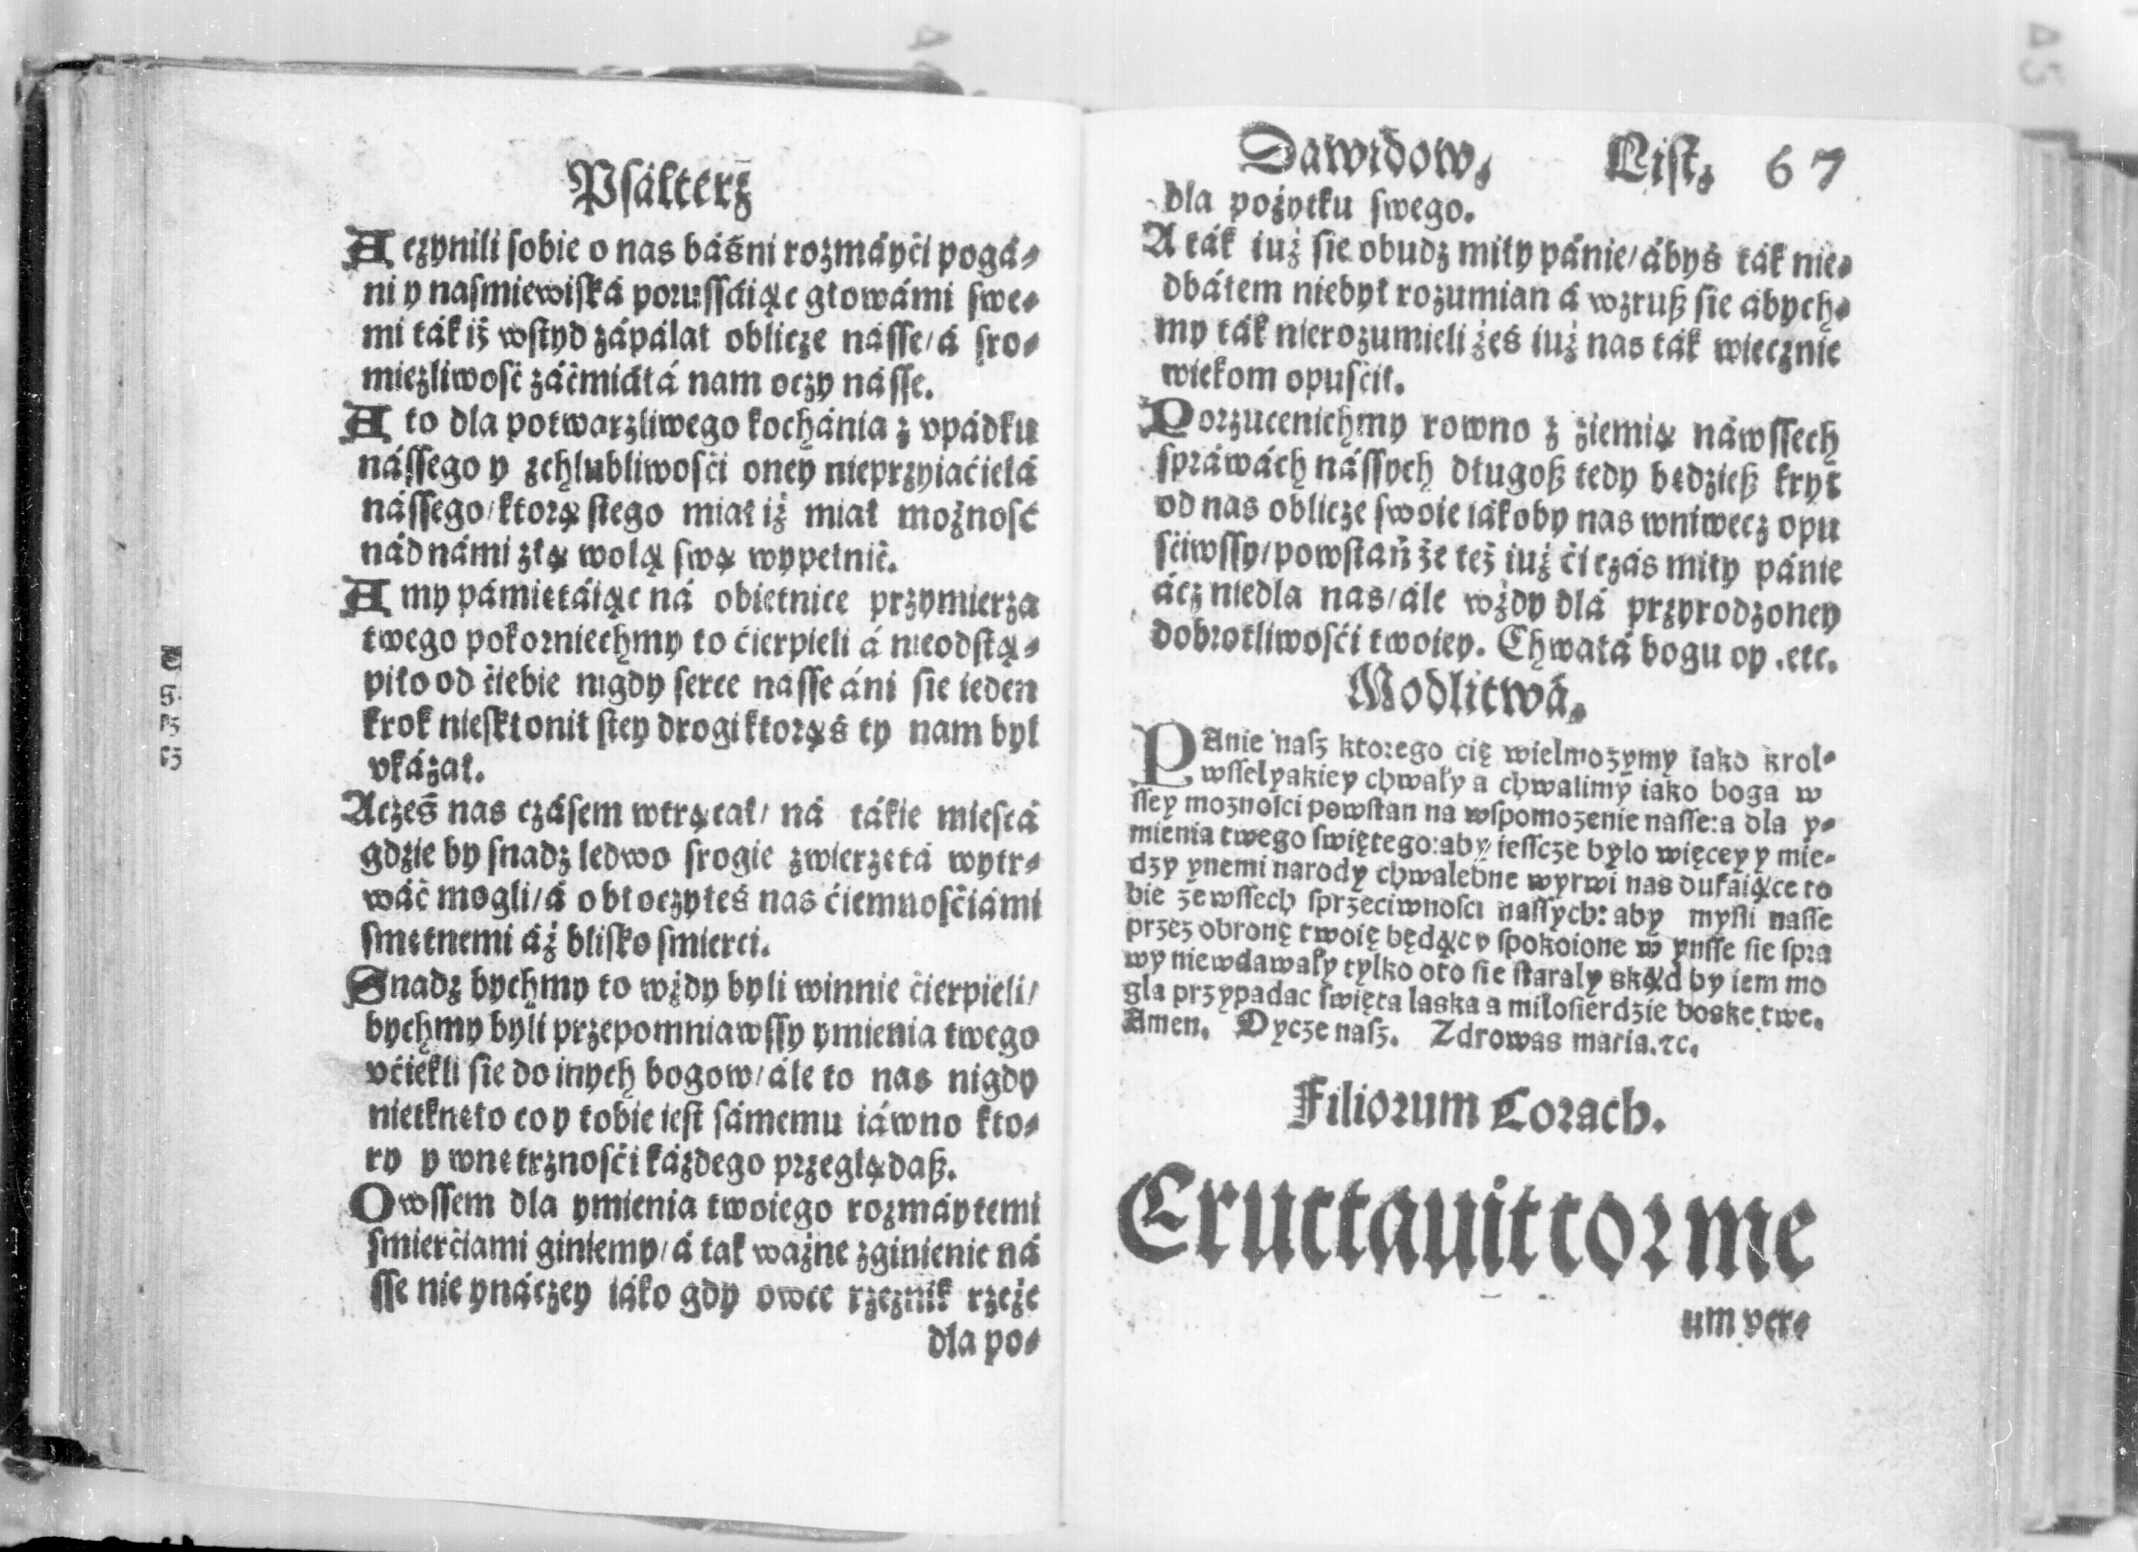 Psálterz
A czynili sobie o nas báśni rozmáyći pogá-
ni y nasmiewiská porussáiąc głowámi swe-
mi ták iż wstyd zápálał oblicze násse/á sro-
miezliwość záćmiáłá nam oczy násse.
A to dla potwarzliwego kochánia z vpádku
nássego y zchlubliwosći oney nieprzyiaćielá
nássego/ktorą stego miał iż miał możność
nád námi złą wolą swą wypełnić.
A my pámiętáiąc ná obietnice przymierza
twego pokorniechmy to ćierpieli á nieodstą-
piło od ćiebie nigdy serce násse áni sie ieden
krok niesktonił stey drogi ktorąś ty nam był
vkázał.
Acześ nas czásem wtrącał/ ná tákie miescá
gdzie by snadz ledwo srogie zwierzętá wytr-
wáć mogli/á obtoczyłeś nas ćiemnosćiámi
smętnemi áż blisko smierci.
Snadz bychmy to wżdy byli winnie ćierpieli/
bychmy byli przepomniawssy ymienia twego
vćiekli sie do inych bogow/ále to nas nigdy
nietknęło co y tobie iest sámemu iáwno kto-
ry y wnętrznosći káżdego przeglądaß.
Owssem dla ymienia twoiego rozmáytemi
smierćiami giniemy/á tak ważne zginienie ná
sse nie ynáczey iáko gdy owce rzeznik rzeże
dla po-
Dawidow, List, 67
dla pożytku swego.
A ták iuż sie obudz miły pánie/ábyś ták nie-
dbáłem niebył rozumian á wzruß sie ábych-
my ták nierozumieli żeś iuż nas ták wiecznie
wiekom opuśćił.
Porzucenichmy rowno z ziemią náwssech
spráwách nássych długoß tedy będzieß krył
od nas oblicze swoie iákoby nas wniwecz opu
śćiwssy/powstań że też iuż ći czás miły pánie
ácz niedla nas/ále wżdy dlá przyrodzoney
dobrotliwosći twoiey. Chwałá bogu oy .etc.
Modlitwá.
PAnie nasz ktorego cię wielmozymy iako krol-
wsselyakiey chwały a chwalimy iako boga w
ssey moznosci powstan na wspomozenie nasse:a dla y-
mienia twego swiętego:aby iessczę bylo więcey y mie-
dzy ynemi narody chwalebne wyrwi nas dufaiące to
bie ze wssech sprzeciwnosci nassych: aby mysli nasse
przez obronę twoię będący spokoione w ynsse sie spra
wy niewdawały tylko oto sie staraly skąd by iem mo
gla przypadac swięta laska a milosierdzie boske twe.
Amen. Oycze nasz. Zdrowas maria.⁊c.
Filiorum Corach.
Eructauit cor me
um ver-